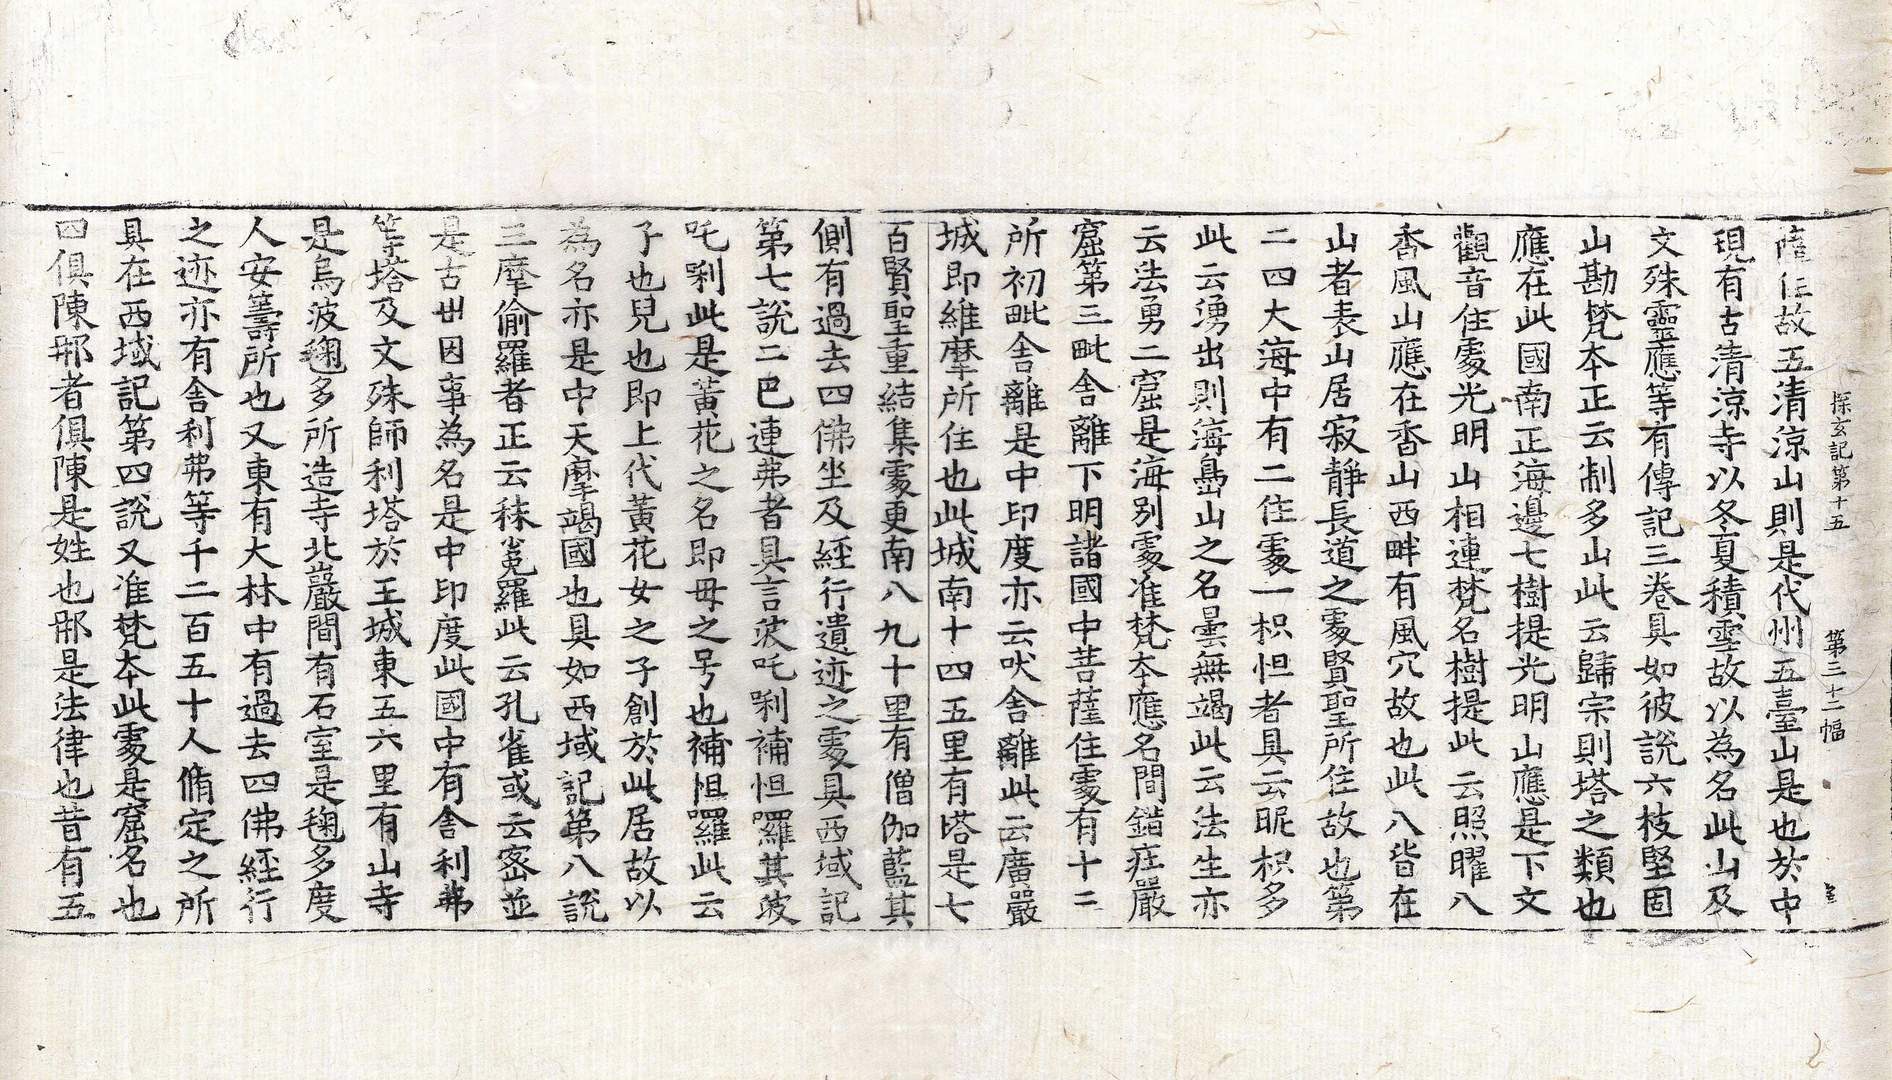 探玄記第十五　第三十二幅
薩住故五清涼山則是代州五臺山是也於中
現有古清涼寺以冬夏積雪故以為名此山及
文殊靈應等有傳記三卷具如彼說六枝堅固
山勘梵本正云制多山此云歸宗則塔之類也
應在此國南正海邊七樹提光明山應是下文
觀音住處光明山相連梵名樹提此云照曜八
香風山應在香山西畔有風穴故也此八皆在
山者表山居寂靜長道之處賢聖所住故也第
二四大海中有二住處一枳怛者具云昵枳多
此云湧出則海島山之名曇無竭此云法生亦
云法勇二窟是海別處准梵本應名間錯庄嚴
窟第三毗舍離下明諸國中菩薩住處有十二
所初毗舍離是中印度亦云吠舍離此云廣嚴
城即維摩所住也此城南十四五里有塔是七
百賢聖重結集處更南八九十里有僧伽藍其
側有過去四佛坐及經行遺迹之處具西域記
第七說二巴連弗者具言波吒唎補怛囉其波
吒唎此是黃花之名即母之号也補怛囉此云
子也兒也即上代黃花女之子創於此居故以
為名亦是中天摩竭國也具如西域記第八說
三摩偷羅者正云秣菟羅此云孔雀或云密並
是古世因事為名是中印度此國中有舍利弗
等塔及文殊師利塔於王城東五六里有山寺
是烏波毱多所造寺北巖間有石室是毱多度
人安籌所也又東有大林中有過去四佛經行
之迹亦有舍利弗等千二百五十人脩定之所
具在西域記第四說又准梵本此處是窟名也
四俱陳那者俱陳是姓也那是法律也昔有五